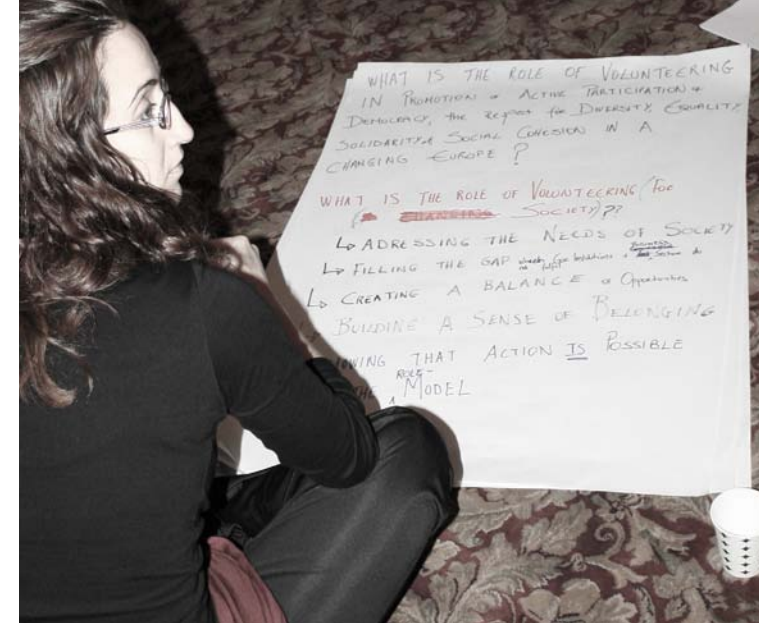 WHAT IS THE ROLE OF VOLUNTEERING
IN PROMOTION of ACTIVE PARTICIPATION &
DEMOCRACY, the Respect for DIVERSITY, EQUALITY,
SOLIDARITY & SOCIAL COHESION IN A
CHANGING EUROPE ?
WHAT IS THE ROLE OF VOLUNTEERING (FOR
SOCIETY)??
↳ ADRESSING THE NEEDS OF SOCIETY
↳ FILLING THE GAP Gov Institutions
not fulfil
↳ CREATING A BALANCE of Opportunities
BUILDING A SENSE OF BELONGING
OWING THAT ACTION IS POSSIBLE
ROLE-
THE MODEL